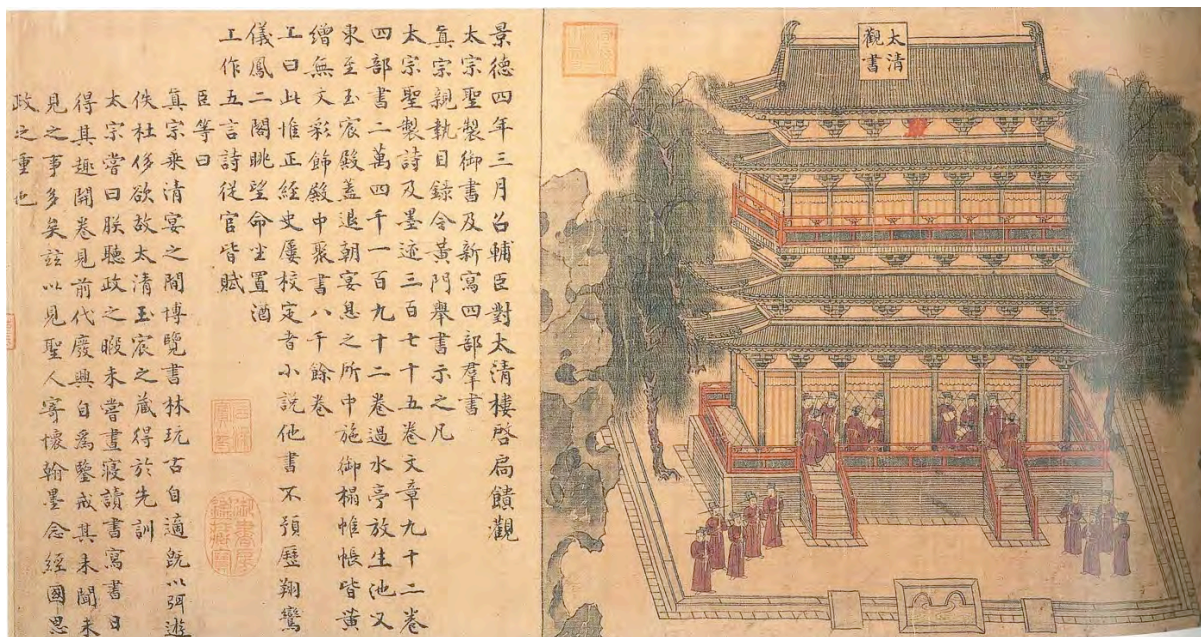 太清
觀書
景德四年三月召輔臣對太清樓啓扃饋觀
太宗聖製御書及新寫四部羣書
真宗親執目錄令黃門舉書示之凡
太宗聖製詩及墨迹三百七十五卷文章九十二卷
四部書二萬四千一百九十二卷過水亭放生池又
東至玉宸殿蓋退朝宴息之所中施御榻帷帳皆黃
繒無文彩飾殿中聚書八千餘卷
上曰此惟正經史屢校定者小說他書不預歷翔鸞
儀鳳二閣眺望命坐置酒
上作五言詩從官皆賦
臣等曰
真宗乘清宴之閒博覽書林玩古自適旣以弭遊
佚杜侈欲故太清玉宸之藏得於先訓
太宗嘗曰朕聽政之暇未嘗晝寢讀書寫書日
得其趣開卷見前代廢興自爲鑒戒其未聞未
見之事多矣茲以見聖人寄懷翰墨念經國思
政之重也